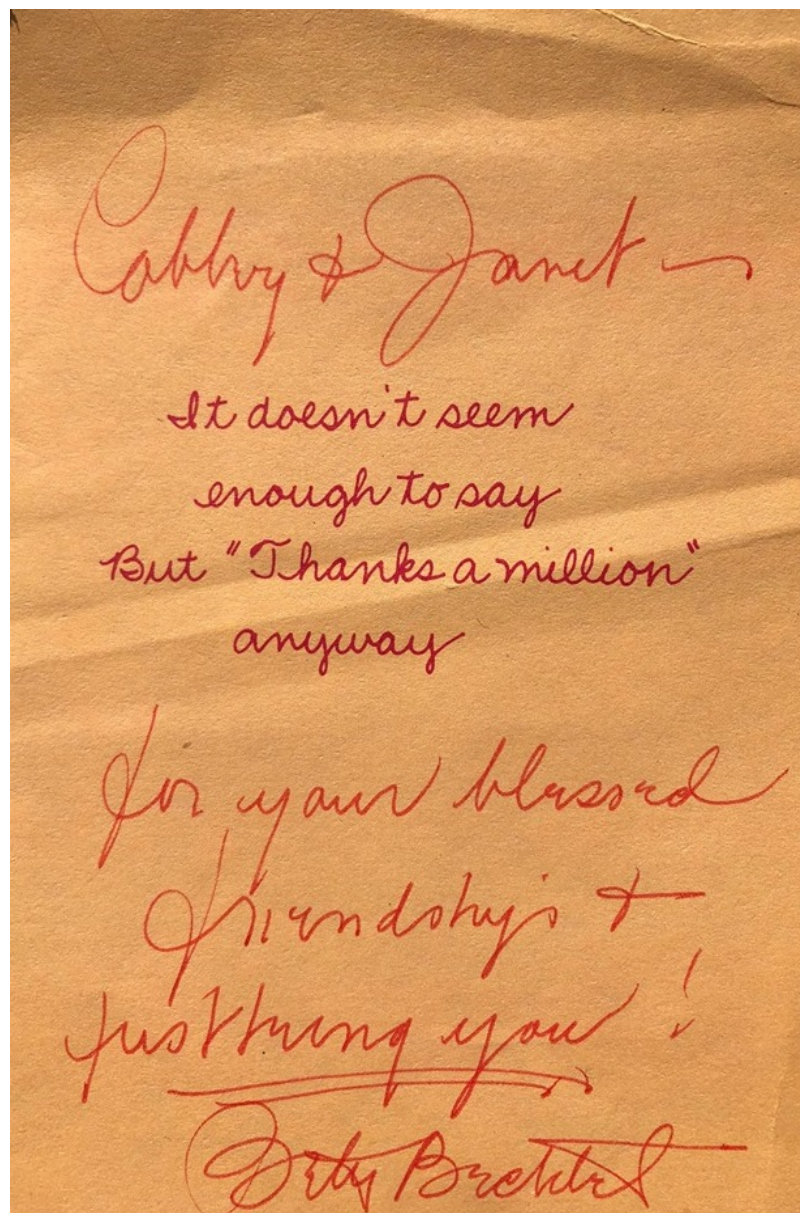 Cabby & Janet —
It doesn't seem
enough to say
But "Thanks a million"
anyway
for your blessed
friendships &
just being you!
Betty Bechtel